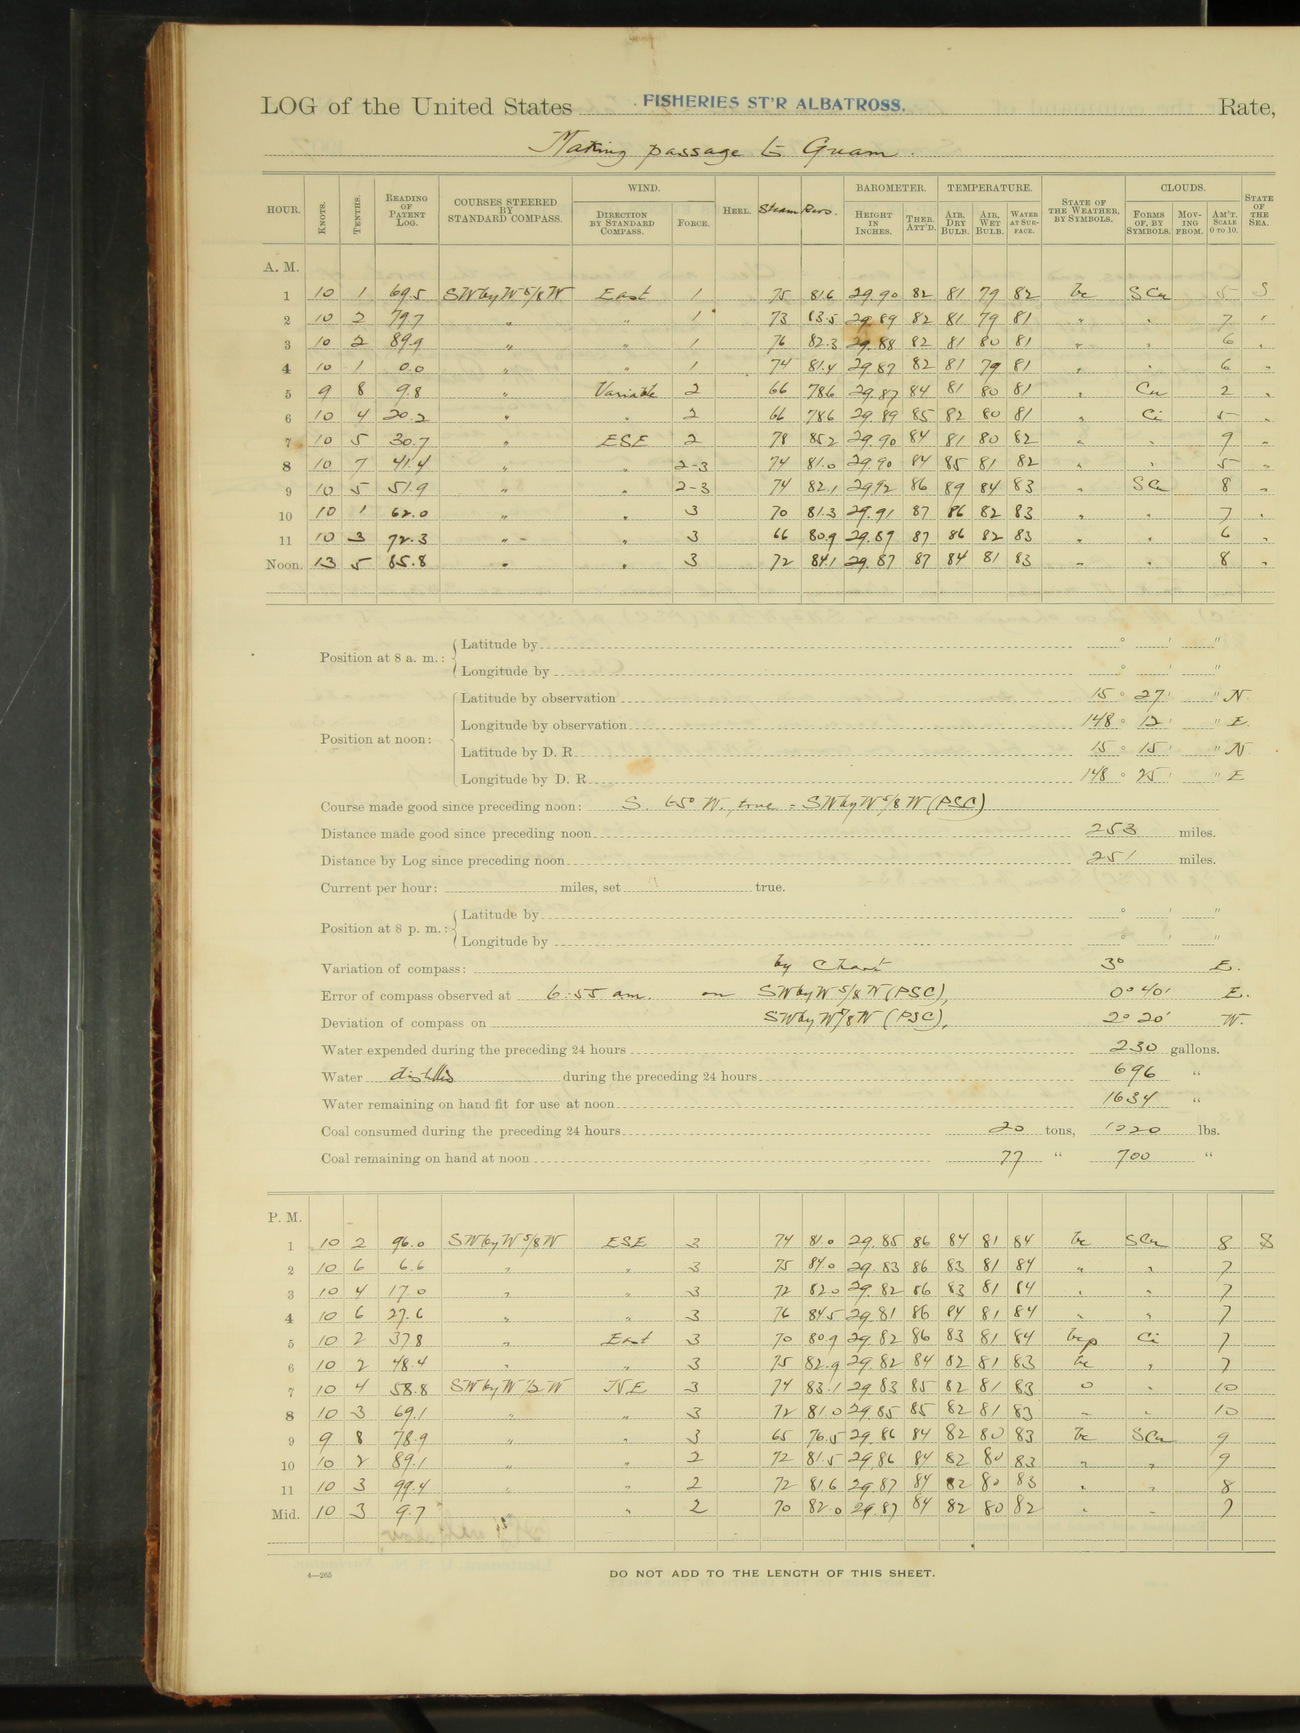 LOG of the United States FISHERIES ST'R ALBATROSS. Rate,
Making passage to Guam.
HOUR. KNOTS. TENTHS. READING OF PATENT LOG. COURSES STEERED BY STANDARD COMPASS. WIND. DIRECTION BY STANDARD COMPASS. FORCE. HEEL. Steam Revs. BAROMETER. HEIGHT IN INCHES. THER. ATT'D. TEMPERATURE. AIR, DRY BULB. AIR, WET BULB. WATER AT SURFACE. STATE OF THE WEATHER, BY SYMBOLS. CLOUDS. FORMS OF, BY SYMBOLS. MOVING FROM. AM'T. SCALE 0 TO 10. STATE OF THE SEA.
A. M.
1 10 1 69.5 SWbyW 5/8 W East 1 75 81.6 29.90 82 81 79 82 bc SCu 5 S
2 10 2 79.7 " " 1 73 83.5 29.89 82 81 79 81 " " 7 "
3 10 2 89.9 " " 1 76 82.3 29.88 82 81 80 81 " " 6 "
4 10 1 0.0 " " 1 74 81.4 29.87 82 81 79 81 " " 6 "
5 9 8 9.8 " Variable 2 66 78.6 29.87 84 81 80 81 " Cu 2 "
6 10 4 20.2 " " 2 66 78.6 29.89 85 82 80 81 " Ci 5 "
7 10 5 30.7 " ESE 2 78 85.2 29.90 84 81 80 82 " " 9 "
8 10 7 41.4 " " 2-3 74 81.0 29.90 84 85 81 82 " " 5 "
9 10 5 51.9 " " 2-3 74 82.1 29.92 86 89 84 83 " SCu 8 "
10 10 1 62.0 " " 3 70 81.3 29.91 87 86 82 83 " " 7 "
11 10 3 72.3 " " 3 66 80.9 29.89 87 86 82 83 " " 6 "
Noon. 13 5 85.8 " " 3 72 84.1 29.87 87 84 81 83 " " 8 "
Position at 8 a. m.: Latitude by ° ' "
Longitude by ° ' "
Position at noon: Latitude by observation 15 ° 27 ' " N
Longitude by observation 148 ° 12 ' " E.
Latitude by D. R. 15 ° 15 ' " N
Longitude by D. R. 148 ° 25 ' " E
Course made good since preceding noon: S. 65° W. true = SWbyW 5/8 W (PSC)
Distance made good since preceding noon 253 miles.
Distance by Log since preceding noon 251 miles.
Current per hour: miles, set true.
Position at 8 p. m.: Latitude by ° ' "
Longitude by ° ' "
Variation of compass: by Chart 3° E.
Error of compass observed at 6:55 am. on SWbyW 5/8 W (PSC), 0° 40' E.
Deviation of compass on SWbyW 5/8 W (PSC), 2° 20' W.
Water expended during the preceding 24 hours 230 gallons.
Water distilled during the preceding 24 hours 696 "
Water remaining on hand fit for use at noon 1634 "
Coal consumed during the preceding 24 hours 20 tons, 1020 lbs.
Coal remaining on hand at noon 77 " 700 "
P. M.
1 10 2 96.0 SWbyW 5/8 W ESE 3 74 81.0 29.85 86 84 81 84 bc SCu 8 S
2 10 6 6.6 " " 3 75 84.0 29.83 86 83 81 84 " " 7
3 10 4 17.0 " " 3 72 82.0 29.82 86 83 81 84 " " 7
4 10 6 27.6 " " 3 76 84.5 29.81 86 84 81 84 " " 7
5 10 2 37.8 " East 3 70 80.9 29.82 86 83 81 84 bcp Ci 7
6 10 2 48.4 " " 3 75 82.9 29.82 84 82 81 83 bc " 7
7 10 4 58.8 SWbyW 1/2 W NE 3 74 83.1 29.83 85 82 81 83 o " 10
8 10 3 69.1 " " 3 72 81.0 29.85 85 82 81 83 " " 10
9 9 8 78.9 " " 3 65 76.5 29.86 84 82 80 83 bc SCu 9
10 10 2 89.1 " " 2 72 81.5 29.86 84 82 80 83 " " 9
11 10 3 99.4 " " 2 72 81.6 29.87 84 82 80 83 " " 8
Mid. 10 3 9.7 " 2 70 82.0 29.87 84 82 80 82 " " 7
4—265 DO NOT ADD TO THE LENGTH OF THIS SHEET.